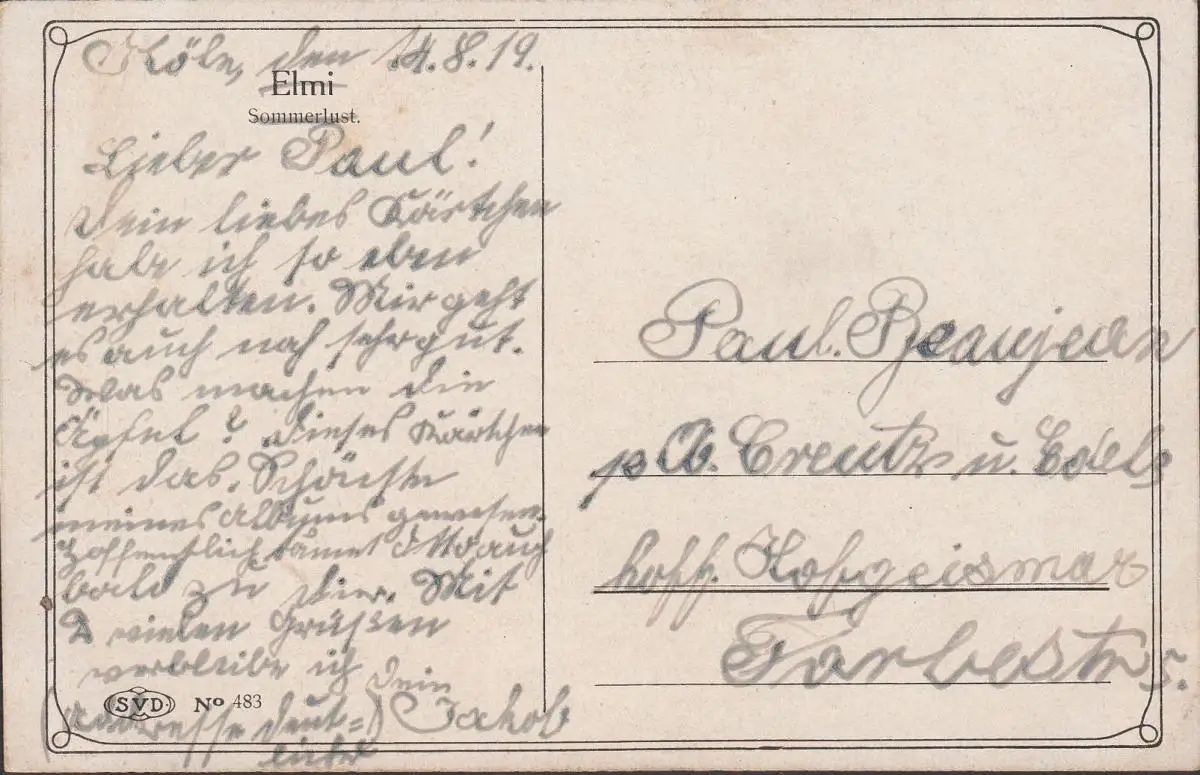 Köln, den 14.8.19.
Elmi
Sommerlust.
Lieber Paul!
Dein liebes Kärtchen
habe ich so eben
erhalten. Mir geht
es auch noch sehr gut.
Was machen die
Äpfel? Dieses Kärtchen
ist das Schönste
meines Albums gewesen.
Hoffentlich kommt Otto auch
bald zu dir. Mit
vielen Grüßen
verbleibe ich
Dein
Jakob
(Adresse deut=)
licher
SVD No 483
Paul. Beaujean
p. A. Creutz u.
hoff. Hofgeismar
Farbestr 5.